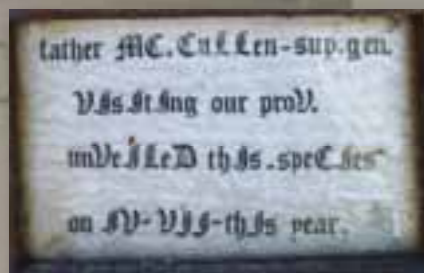 father MC.CuLLen-sup.gen.
VIsItIng our proV.
unVeILeD thIs.speCIes
on IV-VII-thIs year.